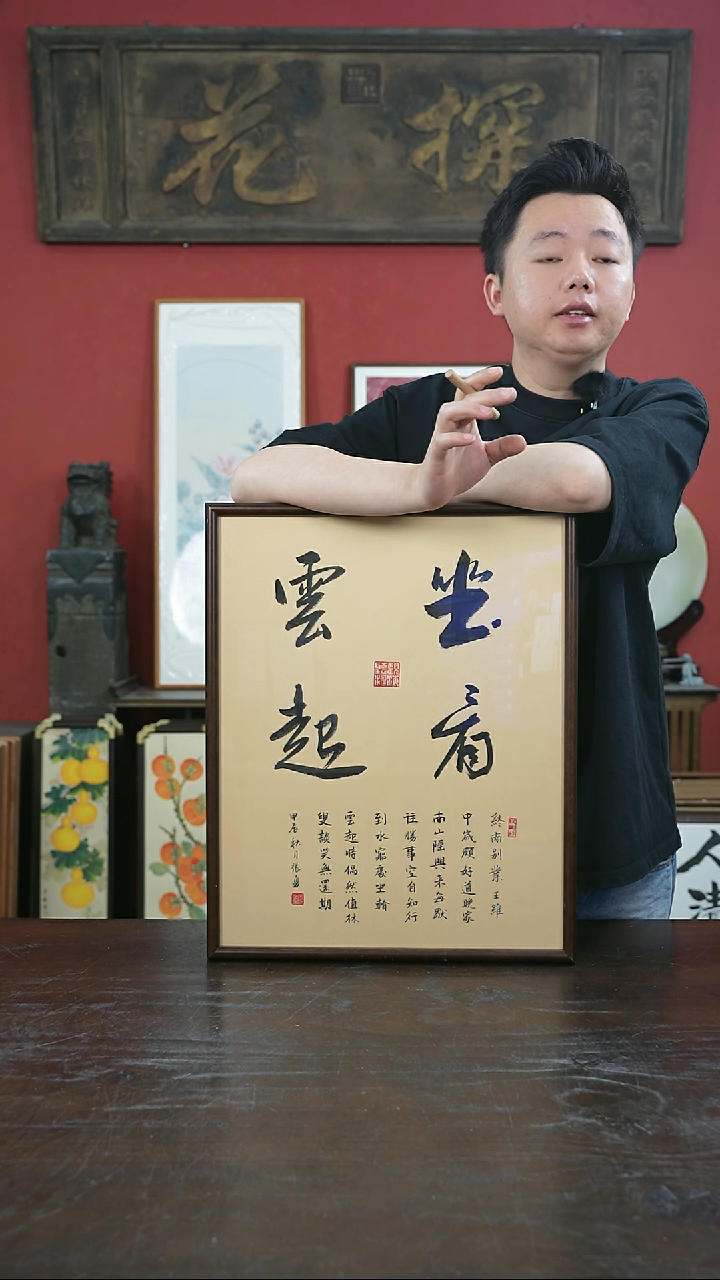 探花
坐看
雲起
終南别業王維
中歲頗好道晚家
南山陲興來每獨
往勝事空自知行
到水窮處坐看
雲起時偶然值林
叟談笑無還期
甲辰秋月張
人
清